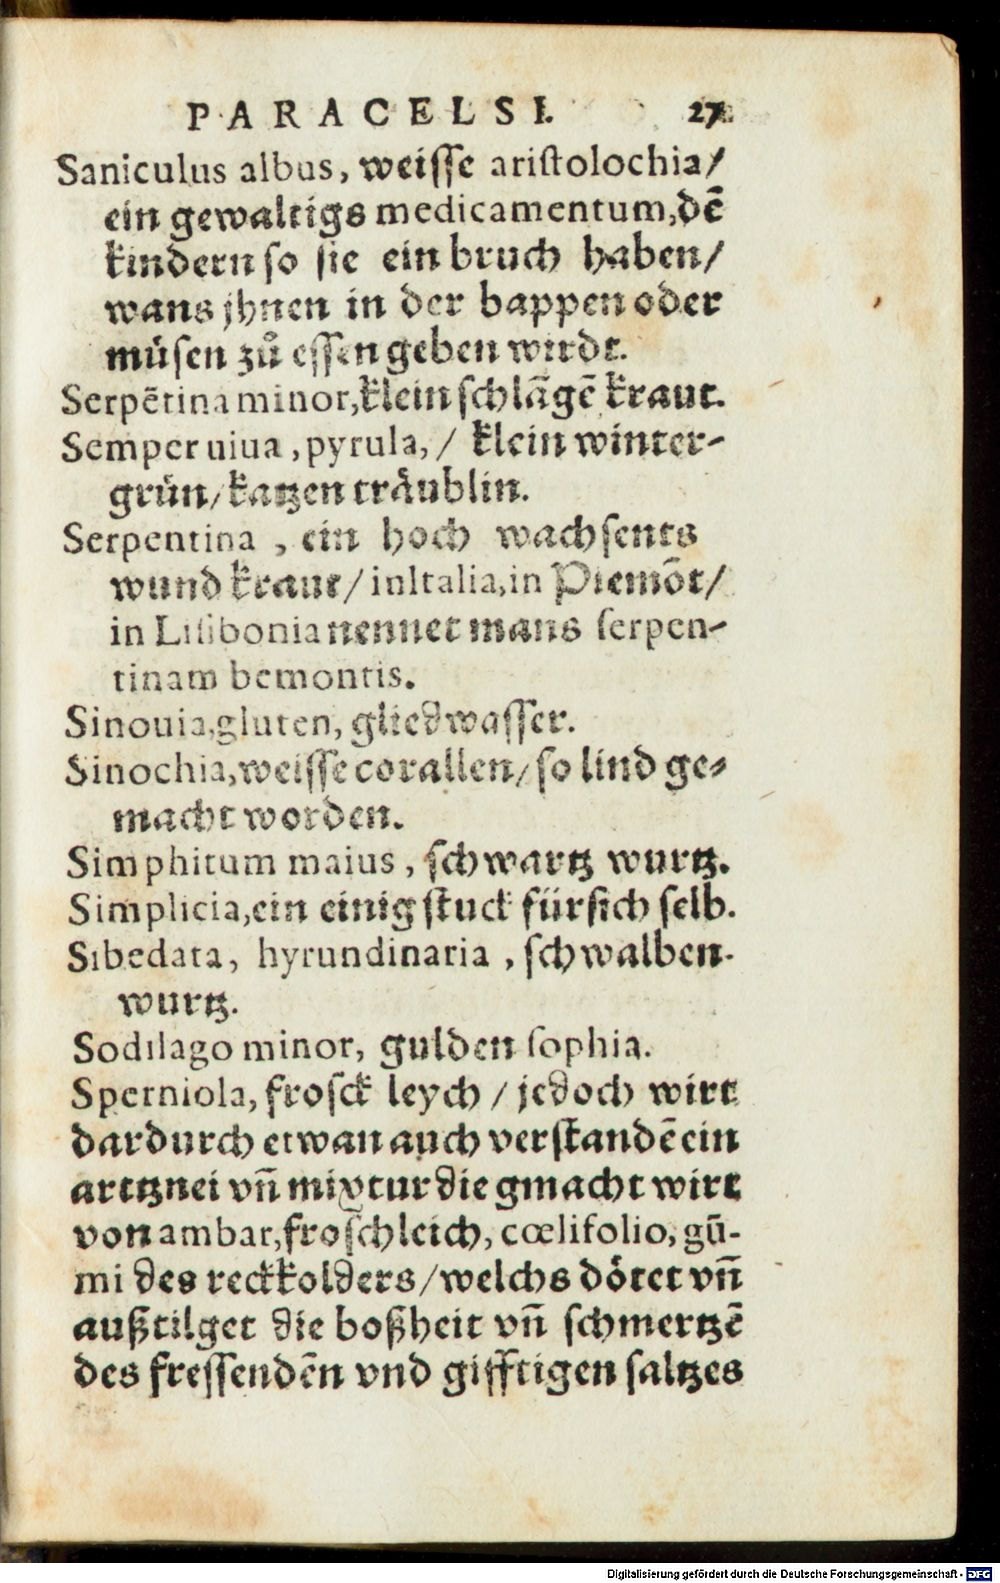 PARACELSI. 27.
Saniculus albus, weiſſe ariſtolochia/
ein gewaltigs medicamentum, dē
kindern ſo ſie ein bruch haben/
wans jhnen in der bappen oder
müſen zů eſſen geben wirdt.
Serpētina minor, klein ſchlāgē kraut.
Semper uiua, pyrula, / klein winter-
grün/ katzen träublin.
Serpentina, ein hoch wachſents
wund kraut/ in Italia, in Piemōt/
in Liſibonia nennet mans ſerpen-
tinam bemontis.
Sinouia, gluten, gliedwaſſer.
Sinochia, weiſſe corallen/ ſo lind ge-
macht worden.
Simphitum maius, ſchwartz wurtz.
Simplicia, ein einig ſtuck fürſich ſelb.
Sibedata, hyrundinaria, ſchwalben-
wurtz.
Sodilago minor, gulden ſophia.
Sperniola, froſck leych / jedoch wirt
dardurch etwan auch verſtandē ein
artznei vñ mixtur die gmacht wirt
von ambar, froſchleich, cœlifolio, gū-
mi des reckkolders/ welchs dötet vñ
außtilget die boßheit vñ ſchmertzē
des freſſendēn vnd gifftigen ſaltzes
Digitalisierung gefördert durch die Deutsche Forschungsgemeinschaft - DFG